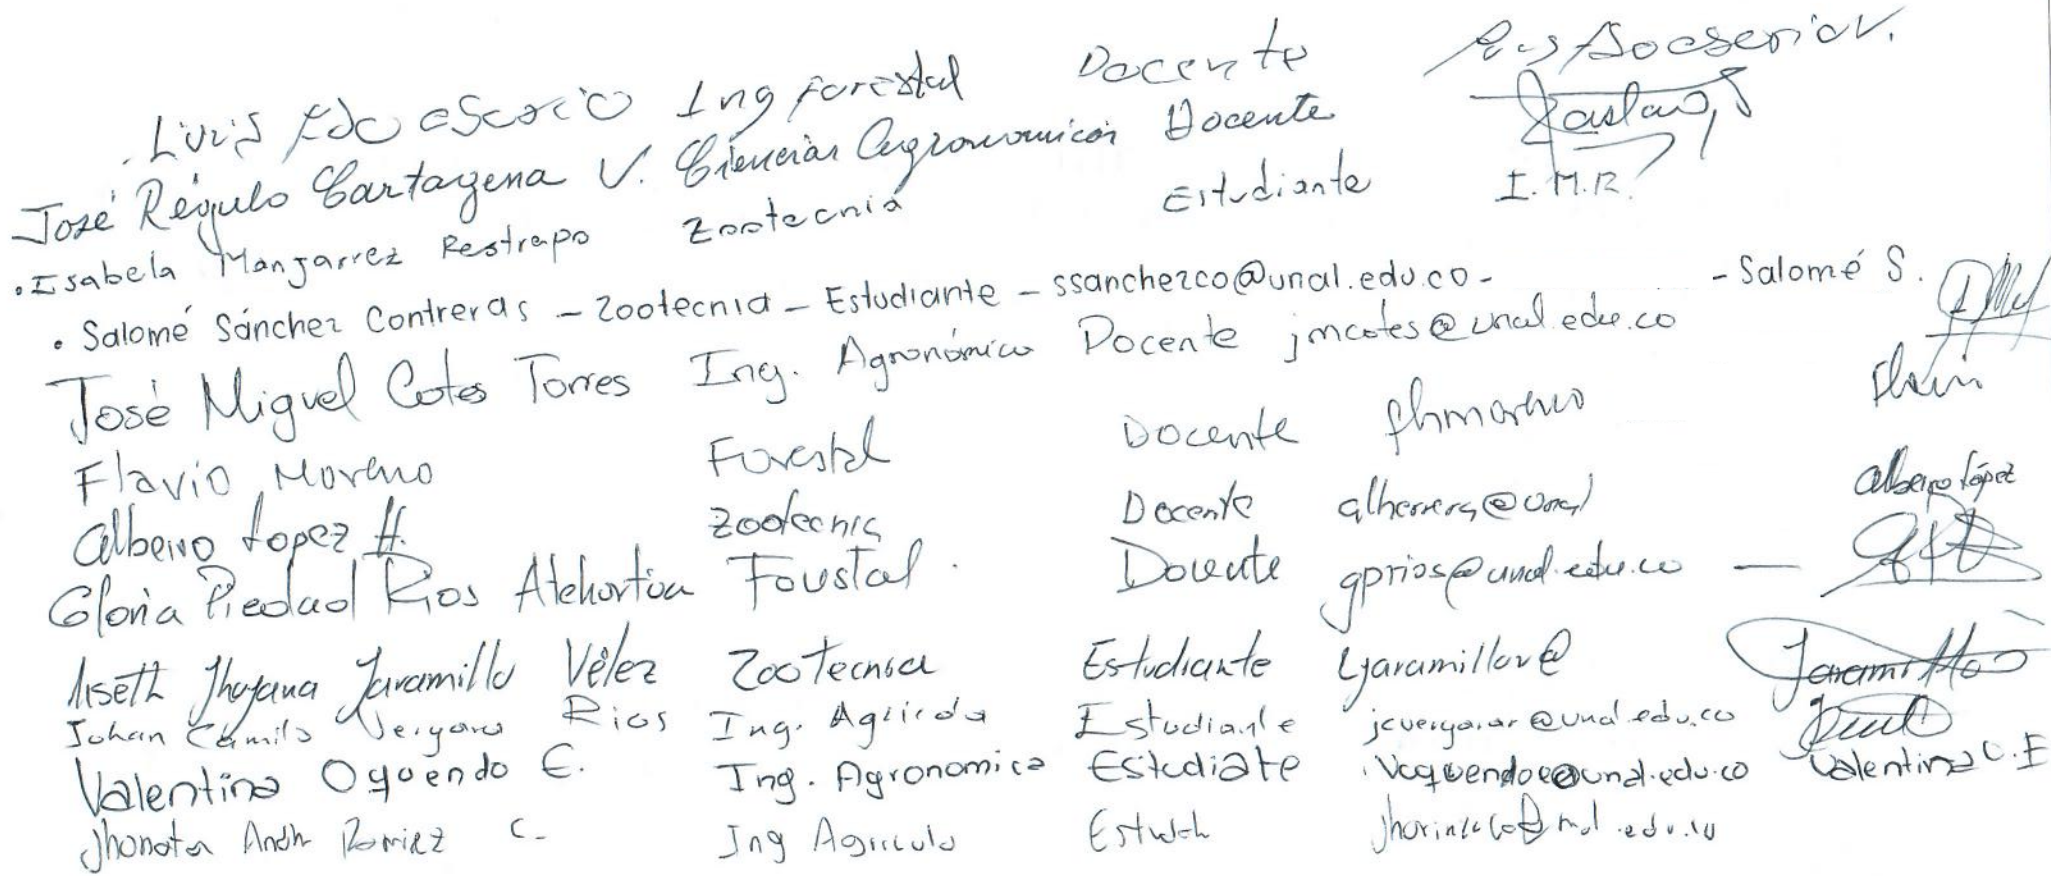 Luis Edo Escorcio Ing Forestal Docente
José Régulo Cartagena V. Ciencias Agronomicas Docente
• Isabela Manjarrez Restrepo Zootecnia Estudiante I.M.R.
• Salomé Sánchez Contreras – Zootecnia – Estudiante – ssanchezco@unal.edu.co - - Salomé S.
José Miguel Cotes Torres Ing. Agronómica Docente jmcotes@unal.edu.co
Flavio Moreno Forestal Docente fhmoreno
Albeiro Lopez H. Zootecnia Docente alherrera@unal Albeiro López
Gloria Piedad Rios Atehortúa Forestal. Docente gprios@unal.edu.co —
Liseth Jhojana Jaramillo Vélez Zootecnia Estudiante ljaramillov@ Jaramillo
Johan Camilo Vergara Rios Ing. Agrícola Estudiante jcvergarar@unal.edu.co
Valentina Oquendo E. Ing. Agronomica Estudiate voquendoe@unal.edu.co Valentina O. E
Jhonatan Ramirez C. Ing Agricula